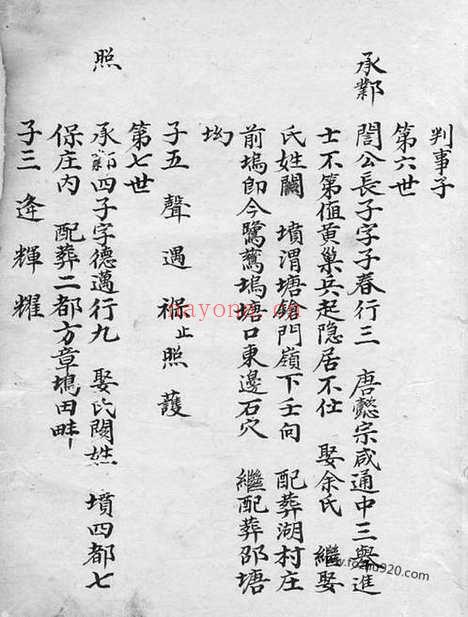 判事子
第六世
承鄴
誾公長子字子春行三 唐懿宗咸通中三舉進
士不第值黄巢兵起隐居不仕 娶余氏 繼娶
氏姓闕 墳渭塘 門嶺下壬向 配葬湖村庄
前塢即今鷺鷥塢塘口東邊石穴 繼配葬邵塘
坳
子五 聲 遇 祿止 照 護
第七世
照
承 四子字德邁行九 娶氏闕姓 墳四都七
保庄内 配葬二都方章塢田畔
子三 逄 輝 耀
nayona.cn
www.fozhu920.com